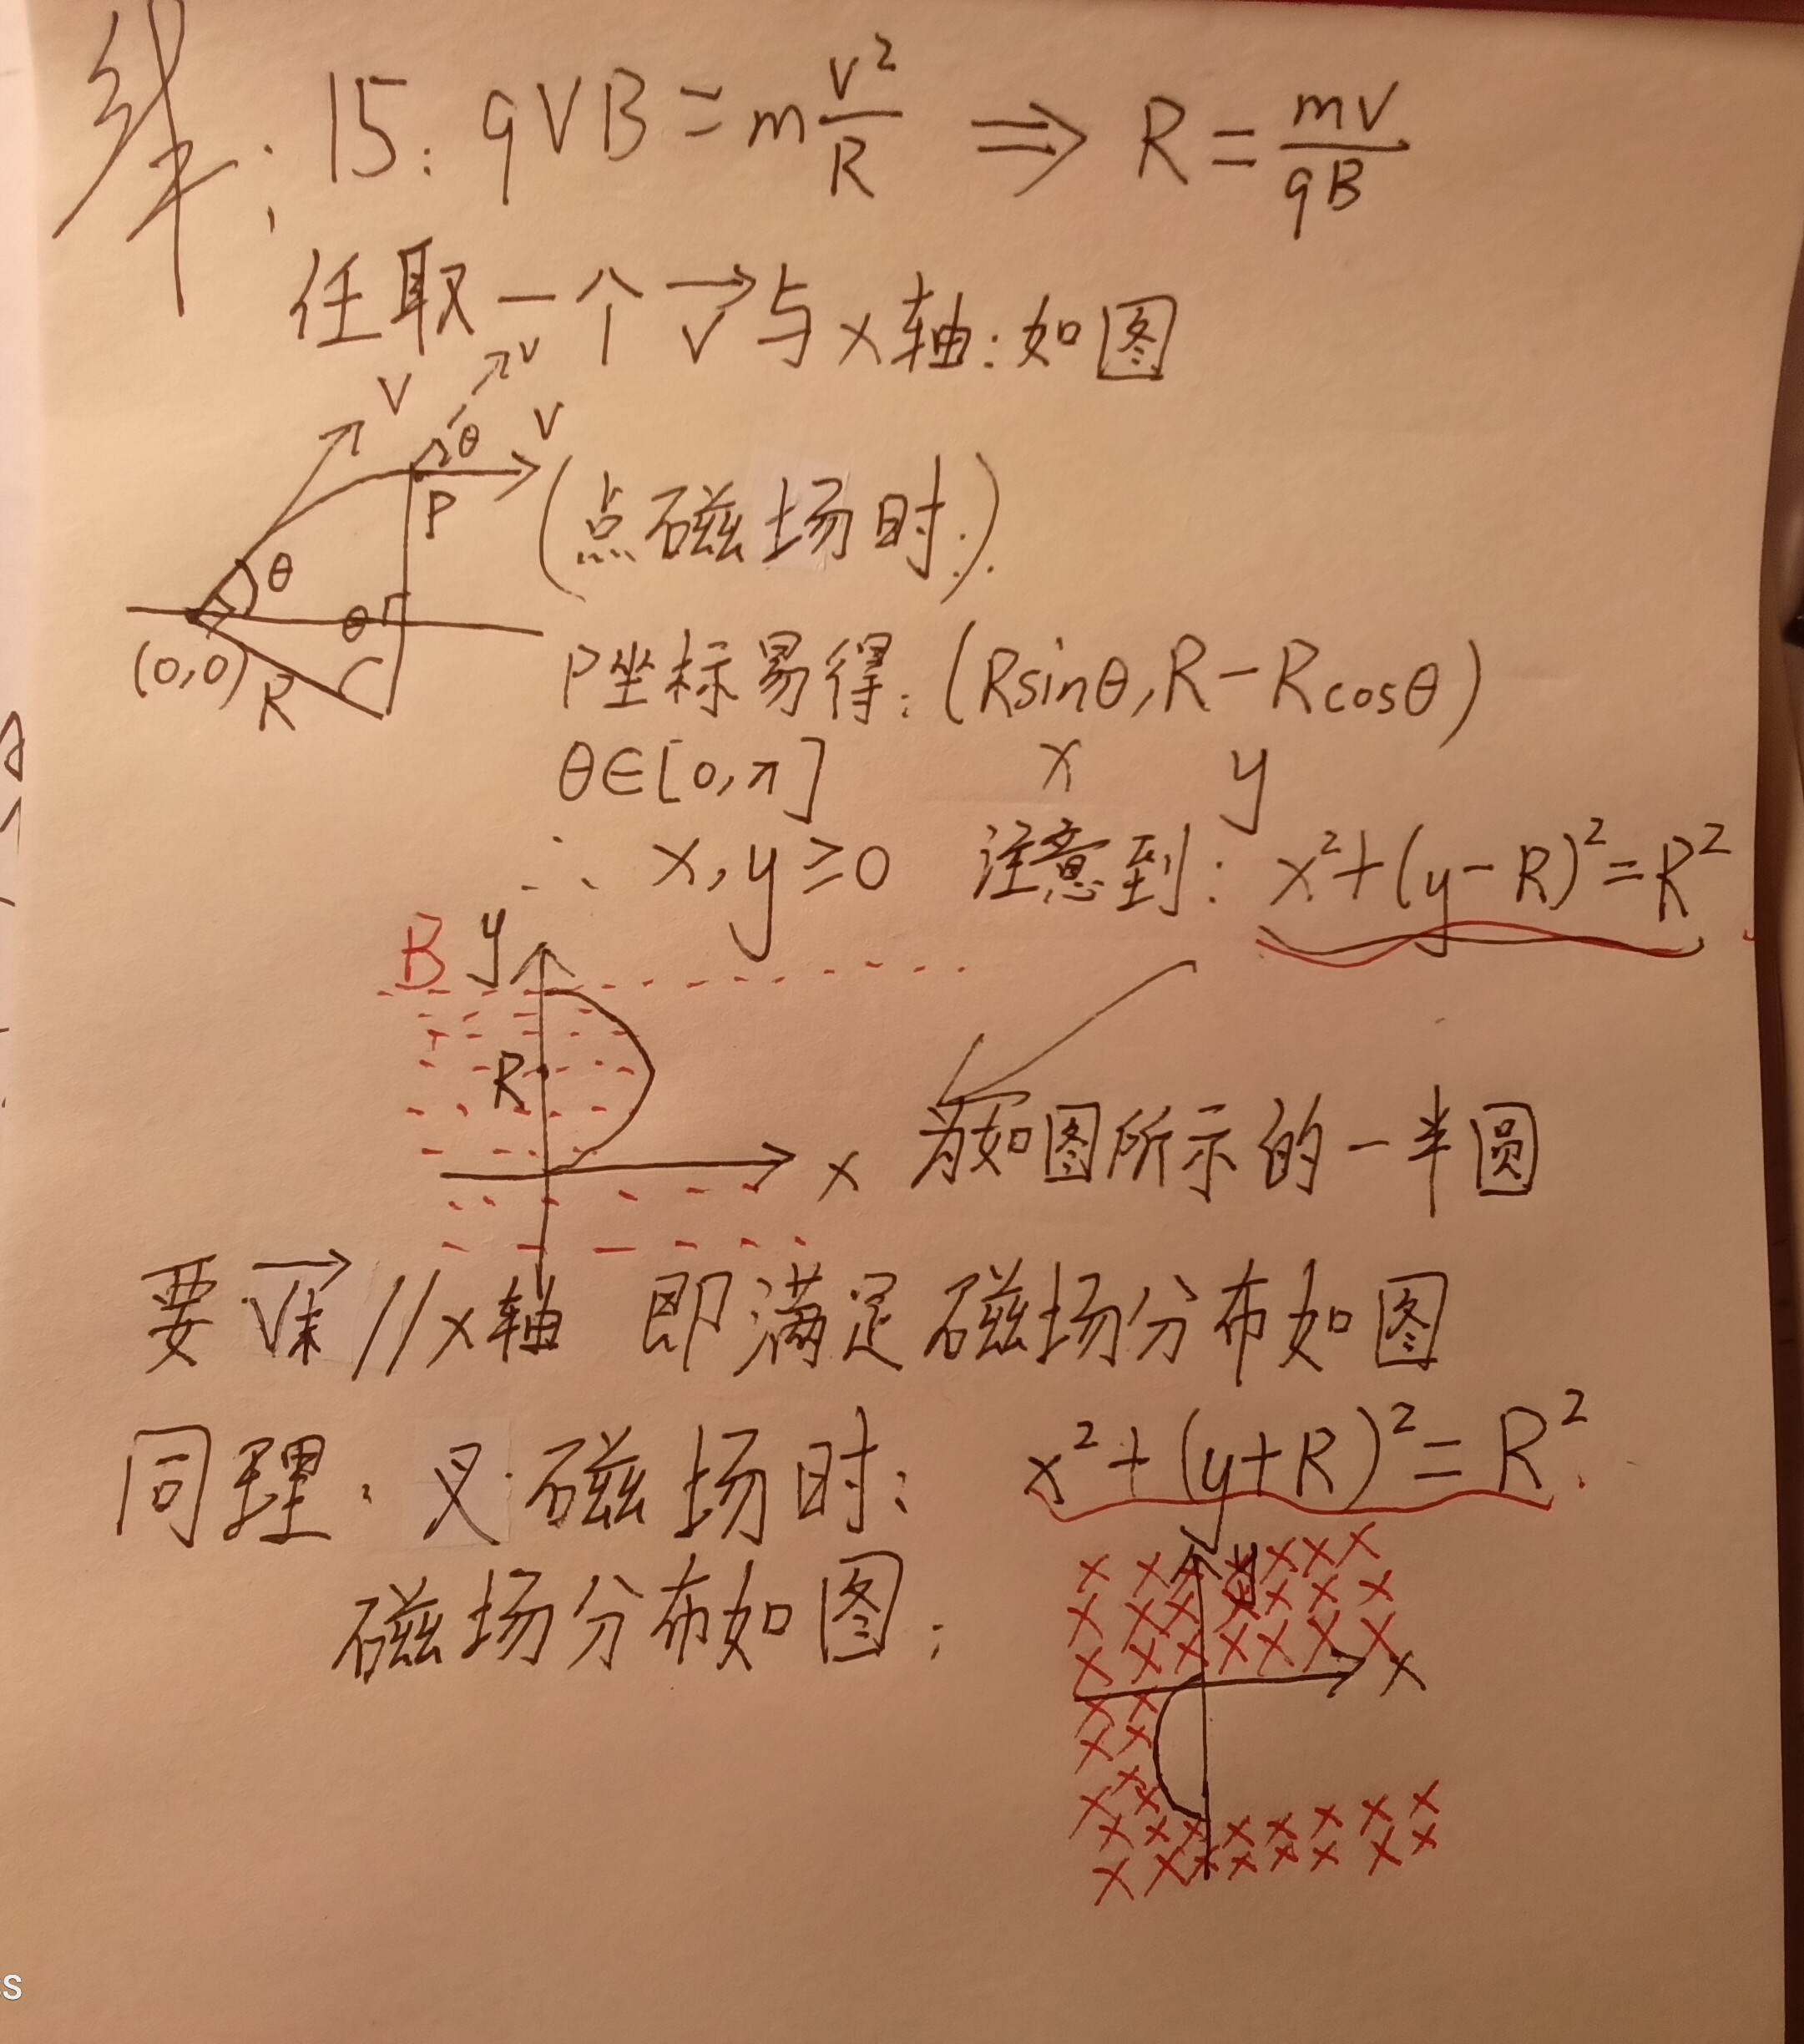 解: 15: qVB=m\frac{V^2}{R} ⇒ R=\frac{mV}{qB}
任取一个\vec{V}与x轴:如图
V V V
θ P (点磁场时.)
θ θ
(0,0) R
P坐标易得: (Rsinθ,R-Rcosθ)
θ∈[0,π] x y
∴ x,y≥0 注意到: x²+(y-R)²=R²
B y
R
x 为如图所示的一半圆
要\vec{V末}//x轴 即满足磁场分布如图
同理: 叉磁场时: x²+(y+R)²=R².
y
磁场分布如图:
x